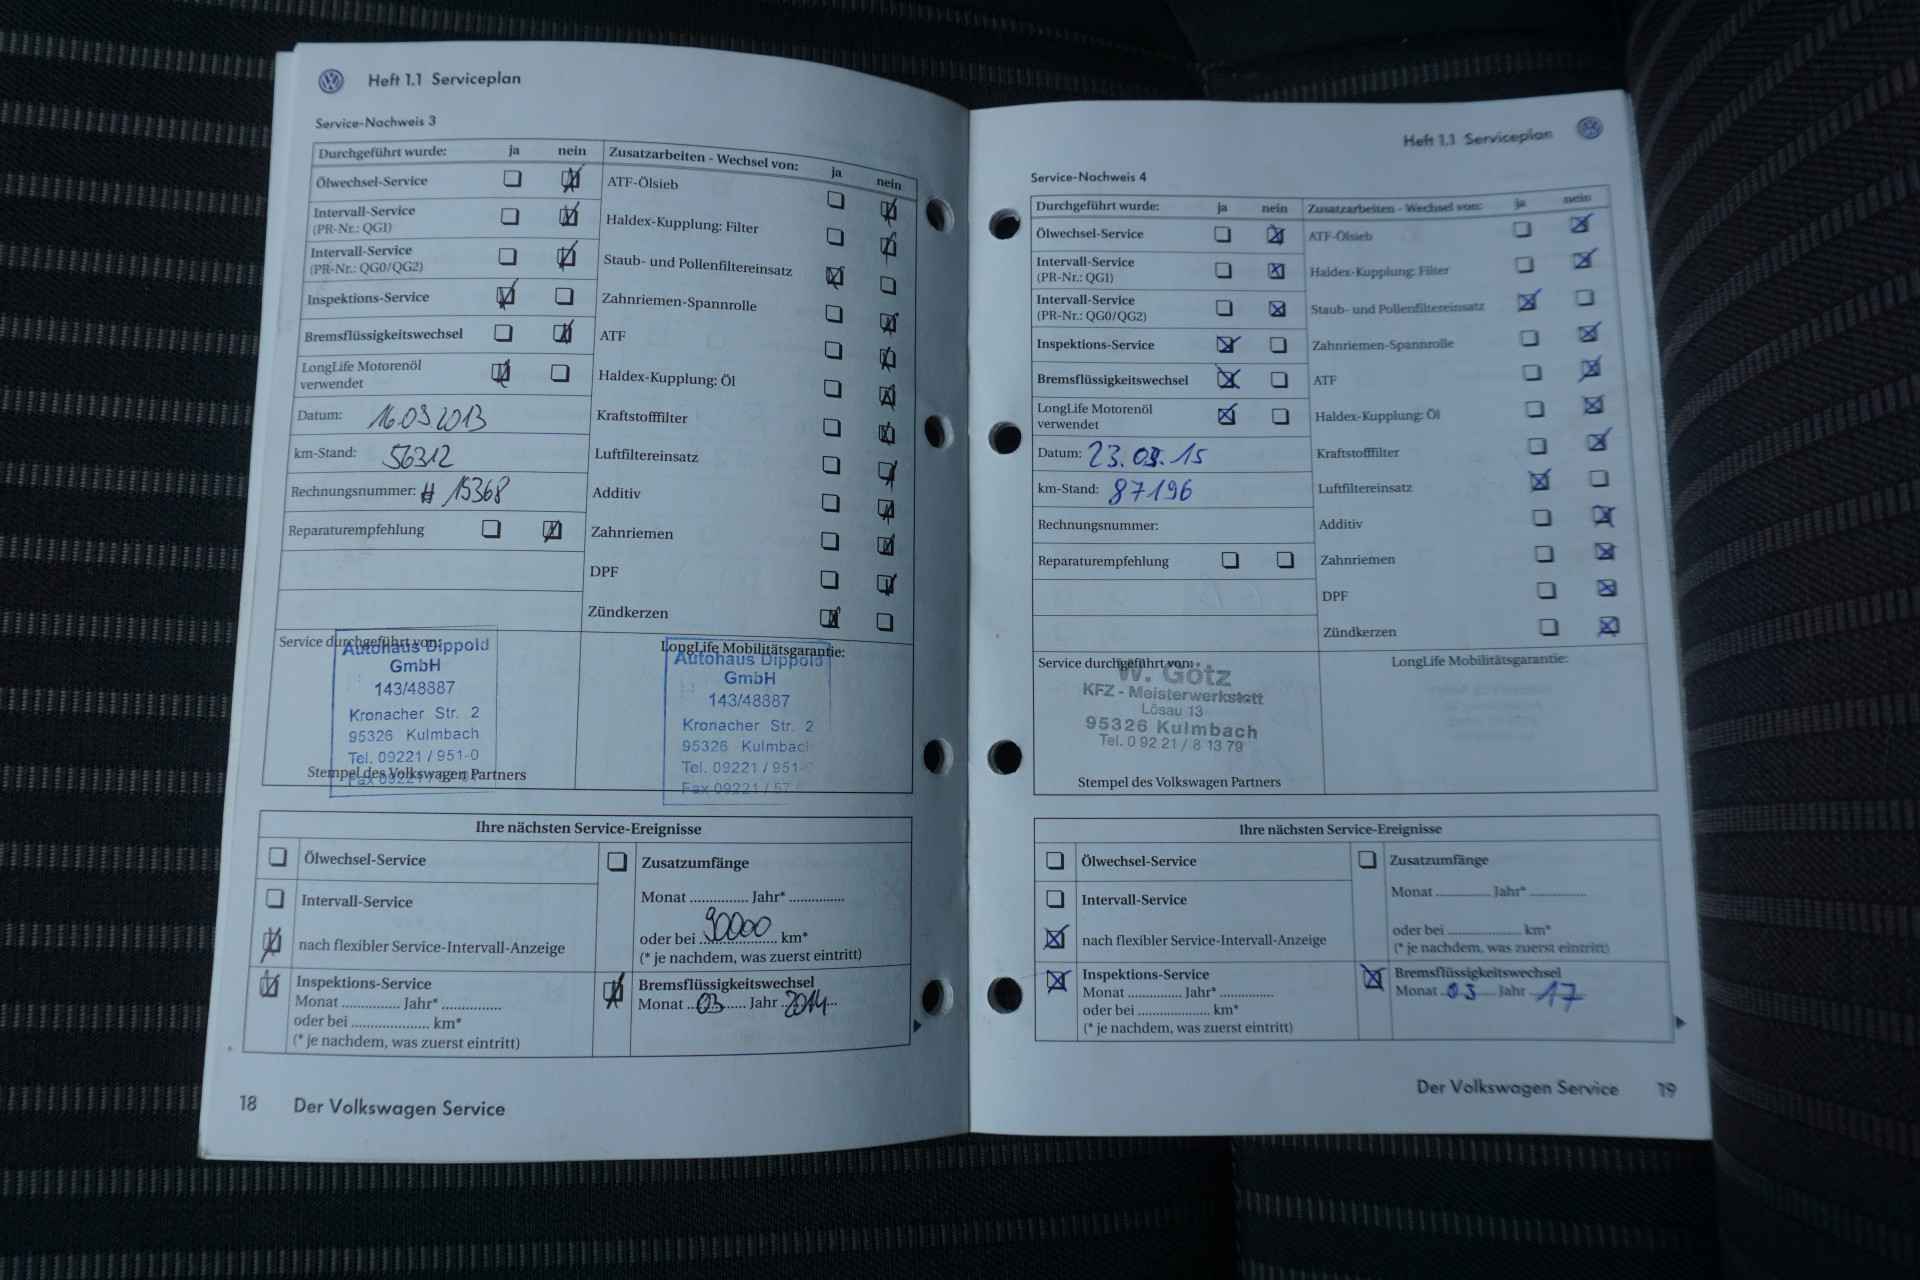 Heft 1.1 Serviceplan
Service-Nachweis 3
Durchgeführt wurde: ja nein
Ölwechsel-Service
Intervall-Service
(PR-Nr.: QG1)
Intervall-Service
(PR-Nr.: QG0/QG2)
Inspektions-Service
Bremsflüssigkeitswechsel
LongLife Motorenöl
verwendet
Datum: 16.03.2013
km-Stand: 56312
Rechnungsnummer: # 15368
Reparaturempfehlung
Zusatzarbeiten - Wechsel von: ja nein
ATF-Ölsieb
Haldex-Kupplung: Filter
Staub- und Pollenfiltereinsatz
Zahnriemen-Spannrolle
ATF
Haldex-Kupplung: Öl
Kraftstofffilter
Luftfiltereinsatz
Additiv
Zahnriemen
DPF
Zündkerzen
Service durchgeführt von:
Autohaus Dippold
GmbH
143/48887
Kronacher Str. 2
95326 Kulmbach
Tel. 09221 / 951-0
Fax 09221
Stempel des Volkswagen Partners
LongLife Mobilitätsgarantie:
Autohaus Dippold
GmbH
143/48887
Kronacher Str. 2
95326 Kulmbach
Tel. 09221 / 951-
Fax 09221 / 57
Ihre nächsten Service-Ereignisse
Ölwechsel-Service
Intervall-Service
nach flexibler Service-Intervall-Anzeige
Inspektions-Service
Monat ............... Jahr* ...............
oder bei ..................... km*
(* je nachdem, was zuerst eintritt)
Zusatzumfänge
Monat ............... Jahr* ..............
oder bei 90000 km*
(* je nachdem, was zuerst eintritt)
Bremsflüssigkeitswechsel
Monat 03 Jahr 2014
18 Der Volkswagen Service
Heft 1.1 Serviceplan
Service-Nachweis 4
Durchgeführt wurde: ja nein
Ölwechsel-Service
Intervall-Service
(PR-Nr.: QG1)
Intervall-Service
(PR-Nr.: QG0/QG2)
Inspektions-Service
Bremsflüssigkeitswechsel
LongLife Motorenöl
verwendet
Datum: 23.03.15
km-Stand: 87196
Rechnungsnummer:
Reparaturempfehlung
Zusatzarbeiten - Wechsel von: ja nein
ATF-Ölsieb
Haldex-Kupplung: Filter
Staub- und Pollenfiltereinsatz
Zahnriemen-Spannrolle
ATF
Haldex-Kupplung: Öl
Kraftstofffilter
Luftfiltereinsatz
Additiv
Zahnriemen
DPF
Zündkerzen
Service durchgeführt von:
W. Götz
KFZ - Meisterwerkstatt
Lösau 13
95326 Kulmbach
Tel. 0 92 21 / 8 13 79
Stempel des Volkswagen Partners
LongLife Mobilitätsgarantie:
Ihre nächsten Service-Ereignisse
Ölwechsel-Service
Intervall-Service
nach flexibler Service-Intervall-Anzeige
Inspektions-Service
Monat ............... Jahr* ...............
oder bei .................... km*
(* je nachdem, was zuerst eintritt)
Zusatzumfänge
Monat ............... Jahr* ...............
oder bei .................... km*
(* je nachdem, was zuerst eintritt)
Bremsflüssigkeitswechsel
Monat 03 Jahr 17
Der Volkswagen Service 19